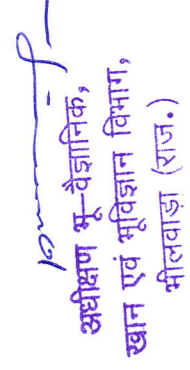 अधीक्षण भू–वैज्ञानिक,
खान एवं भूविज्ञान विभाग,
भीलवाड़ा (राज.)